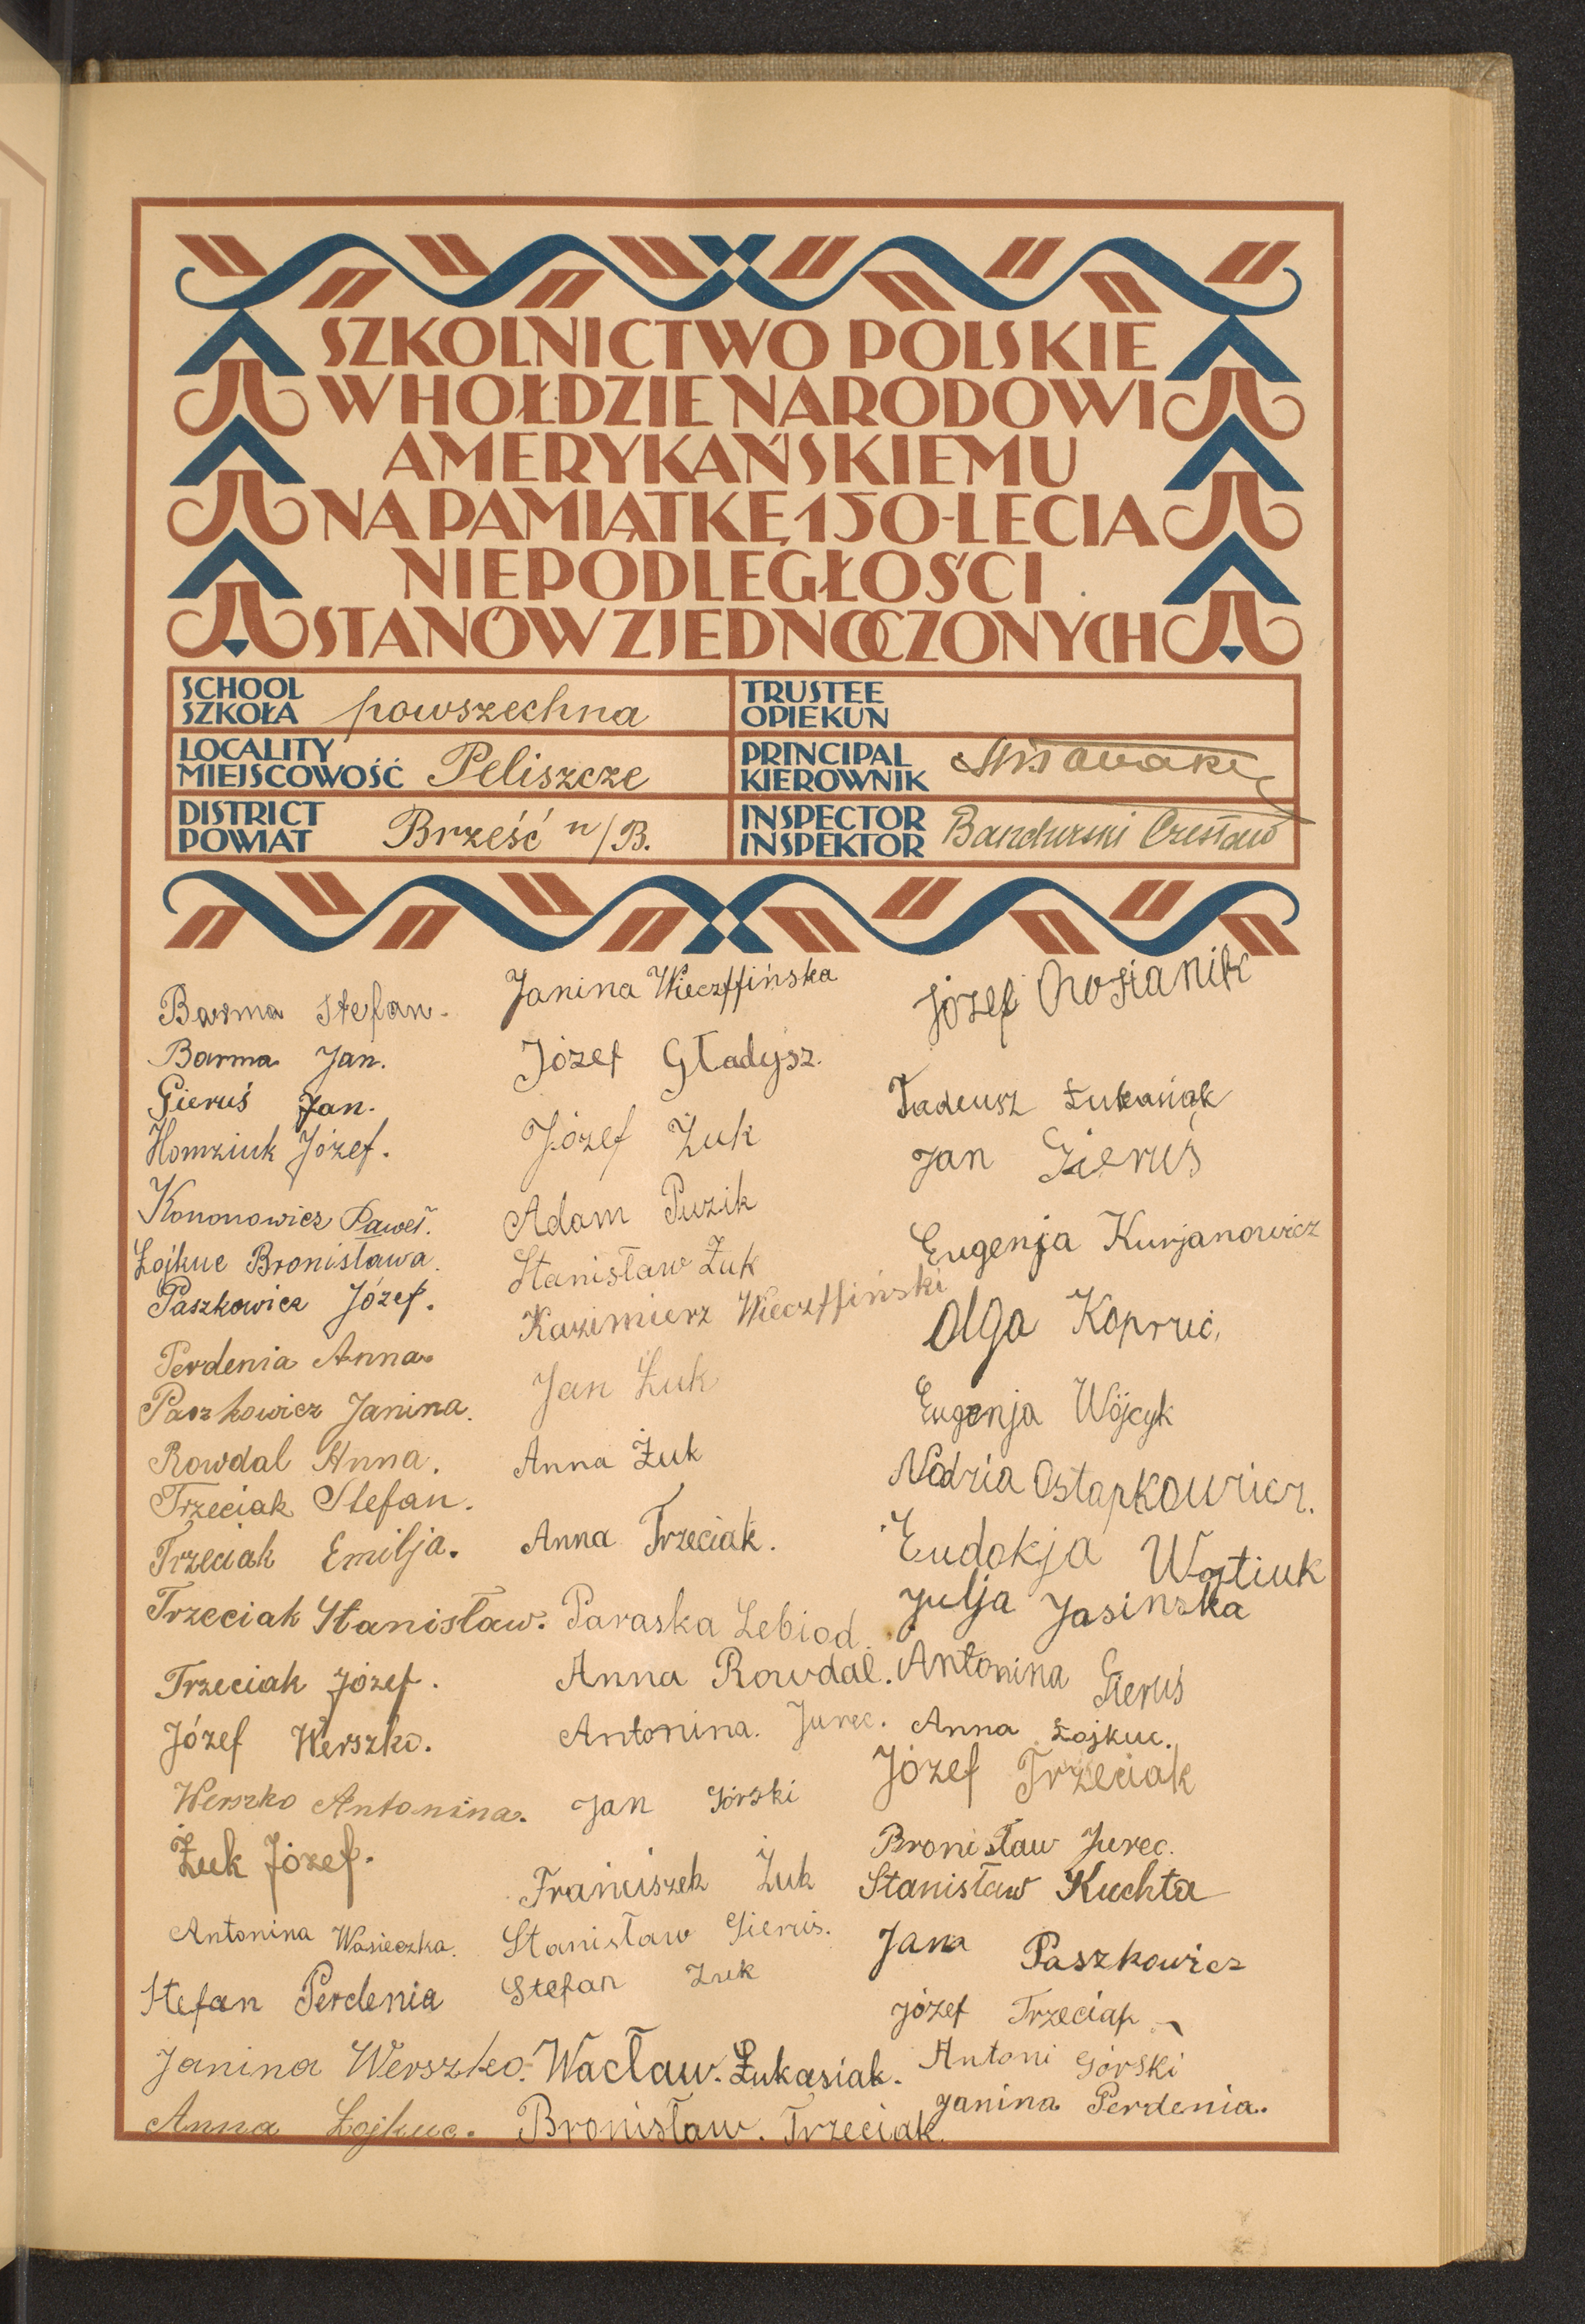 SZKOLNICTWO POLSKIE
W HOŁDZIE NARODOWI
AMERYKAŃSKIEMU
NA PAMIĄTKĘ 150-LECIA
NIEPODLEGŁOŚCI
STANÓW ZJEDNOCZONYCH
SCHOOL
SZKOŁA powszechna
LOCALITY
MIEJSCOWOŚĆ Peliszcze
DISTRICT
POWIAT Brześć n/B.
TRUSTEE
OPIEKUN
PRINCIPAL
KIEROWNIK
INSPECTOR
INSPEKTOR Bandurski Czesław
Barma Stefan.
Barma Jan.
Gieruś Jan.
Homziuk Józef.
Kononowicz Paweł.
Łojkuc Bronisława.
Paszkowicz Józef.
Perdenia Anna.
Paszkowicz Janina.
Rowdal Anna.
Trzeciak Stefan.
Trzeciak Emilja.
Trzeciak Stanisław.
Trzeciak Józef.
Józef Werszko.
Werszko Antonina.
Żuk Józef.
Antonina Wasieczka.
Stefan Perdenia
Janina Werszko.
Anna Łojkuc.
Janina Wieczffińska
Józef Gładysz.
Józef Żuk
Adam Puzik
Stanisław Żuk
Kazimierz Wieczffiński
Jan Żuk
Anna Żuk
Anna Trzeciak.
Paraska Lebiod.
Anna Rowdal.
Antonina. Jurec.
Jan Górski
Franciszek Żuk
Stanisław Gieruś.
Stefan Żuk
Wacław. Łukasiak.
Bronisław. Trzeciak.
Józef
Tadeusz Łukasiak
Jan Gieruś
Eugenja Kurjanowicz
Olga
Eugenja Wójcyk
Nadzia Ostapkowicz.
Eudokja Wojtiuk
Julja Jasinska
Antonina Gieruś
Anna Łojkuc.
Józef Trzeciak
Bronisław Jurec.
Stanisław Kuchta
Jana Paszkowicz
Józef Trzeciak
Antoni Górski
Janina Perdenia.